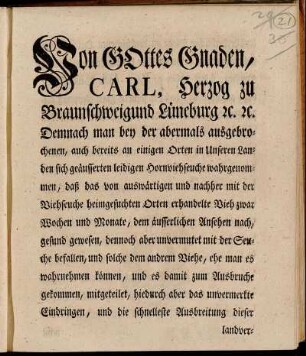 Von GOttes Gnaden,
CARL, Herzog zu
Braunschweig und Lüneburg ꝛc. ꝛc.
Demnach man bey der abermals ausgebro-
chenen, auch bereits an einigen Orten in Unseren Lan-
den sich geäusserten leidigen Hornviehseuche wahrgenom-
men, daß das von auswärtigen und nachher mit der
Viehseuche heimgesuchten Orten erhandelte Vieh zwar
Wochen und Monate, dem äusserlichen Ansehen nach,
gesund gewesen, dennoch aber unvermutet mit der Seu-
che befallen, und solche dem andrem Viehe, ehe man es
wahrnehmen können, und es damit zum Ausbruche
gekommen, mitgeteilet, hiedurch aber das unvermerkte
Eindringen, und die schnelleste Ausbreitung dieser
landver-
(21)